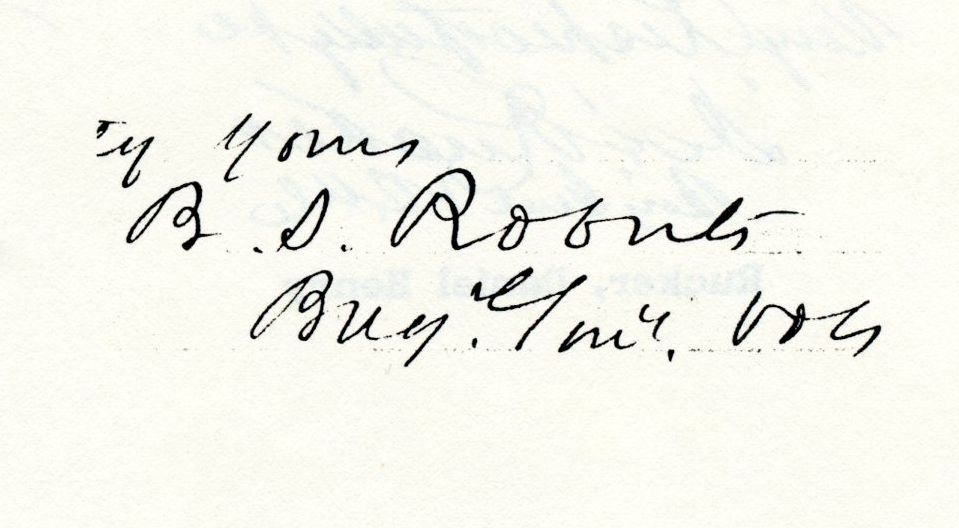 ly yours
B. S. Roberts
Brig. Genl. Vols